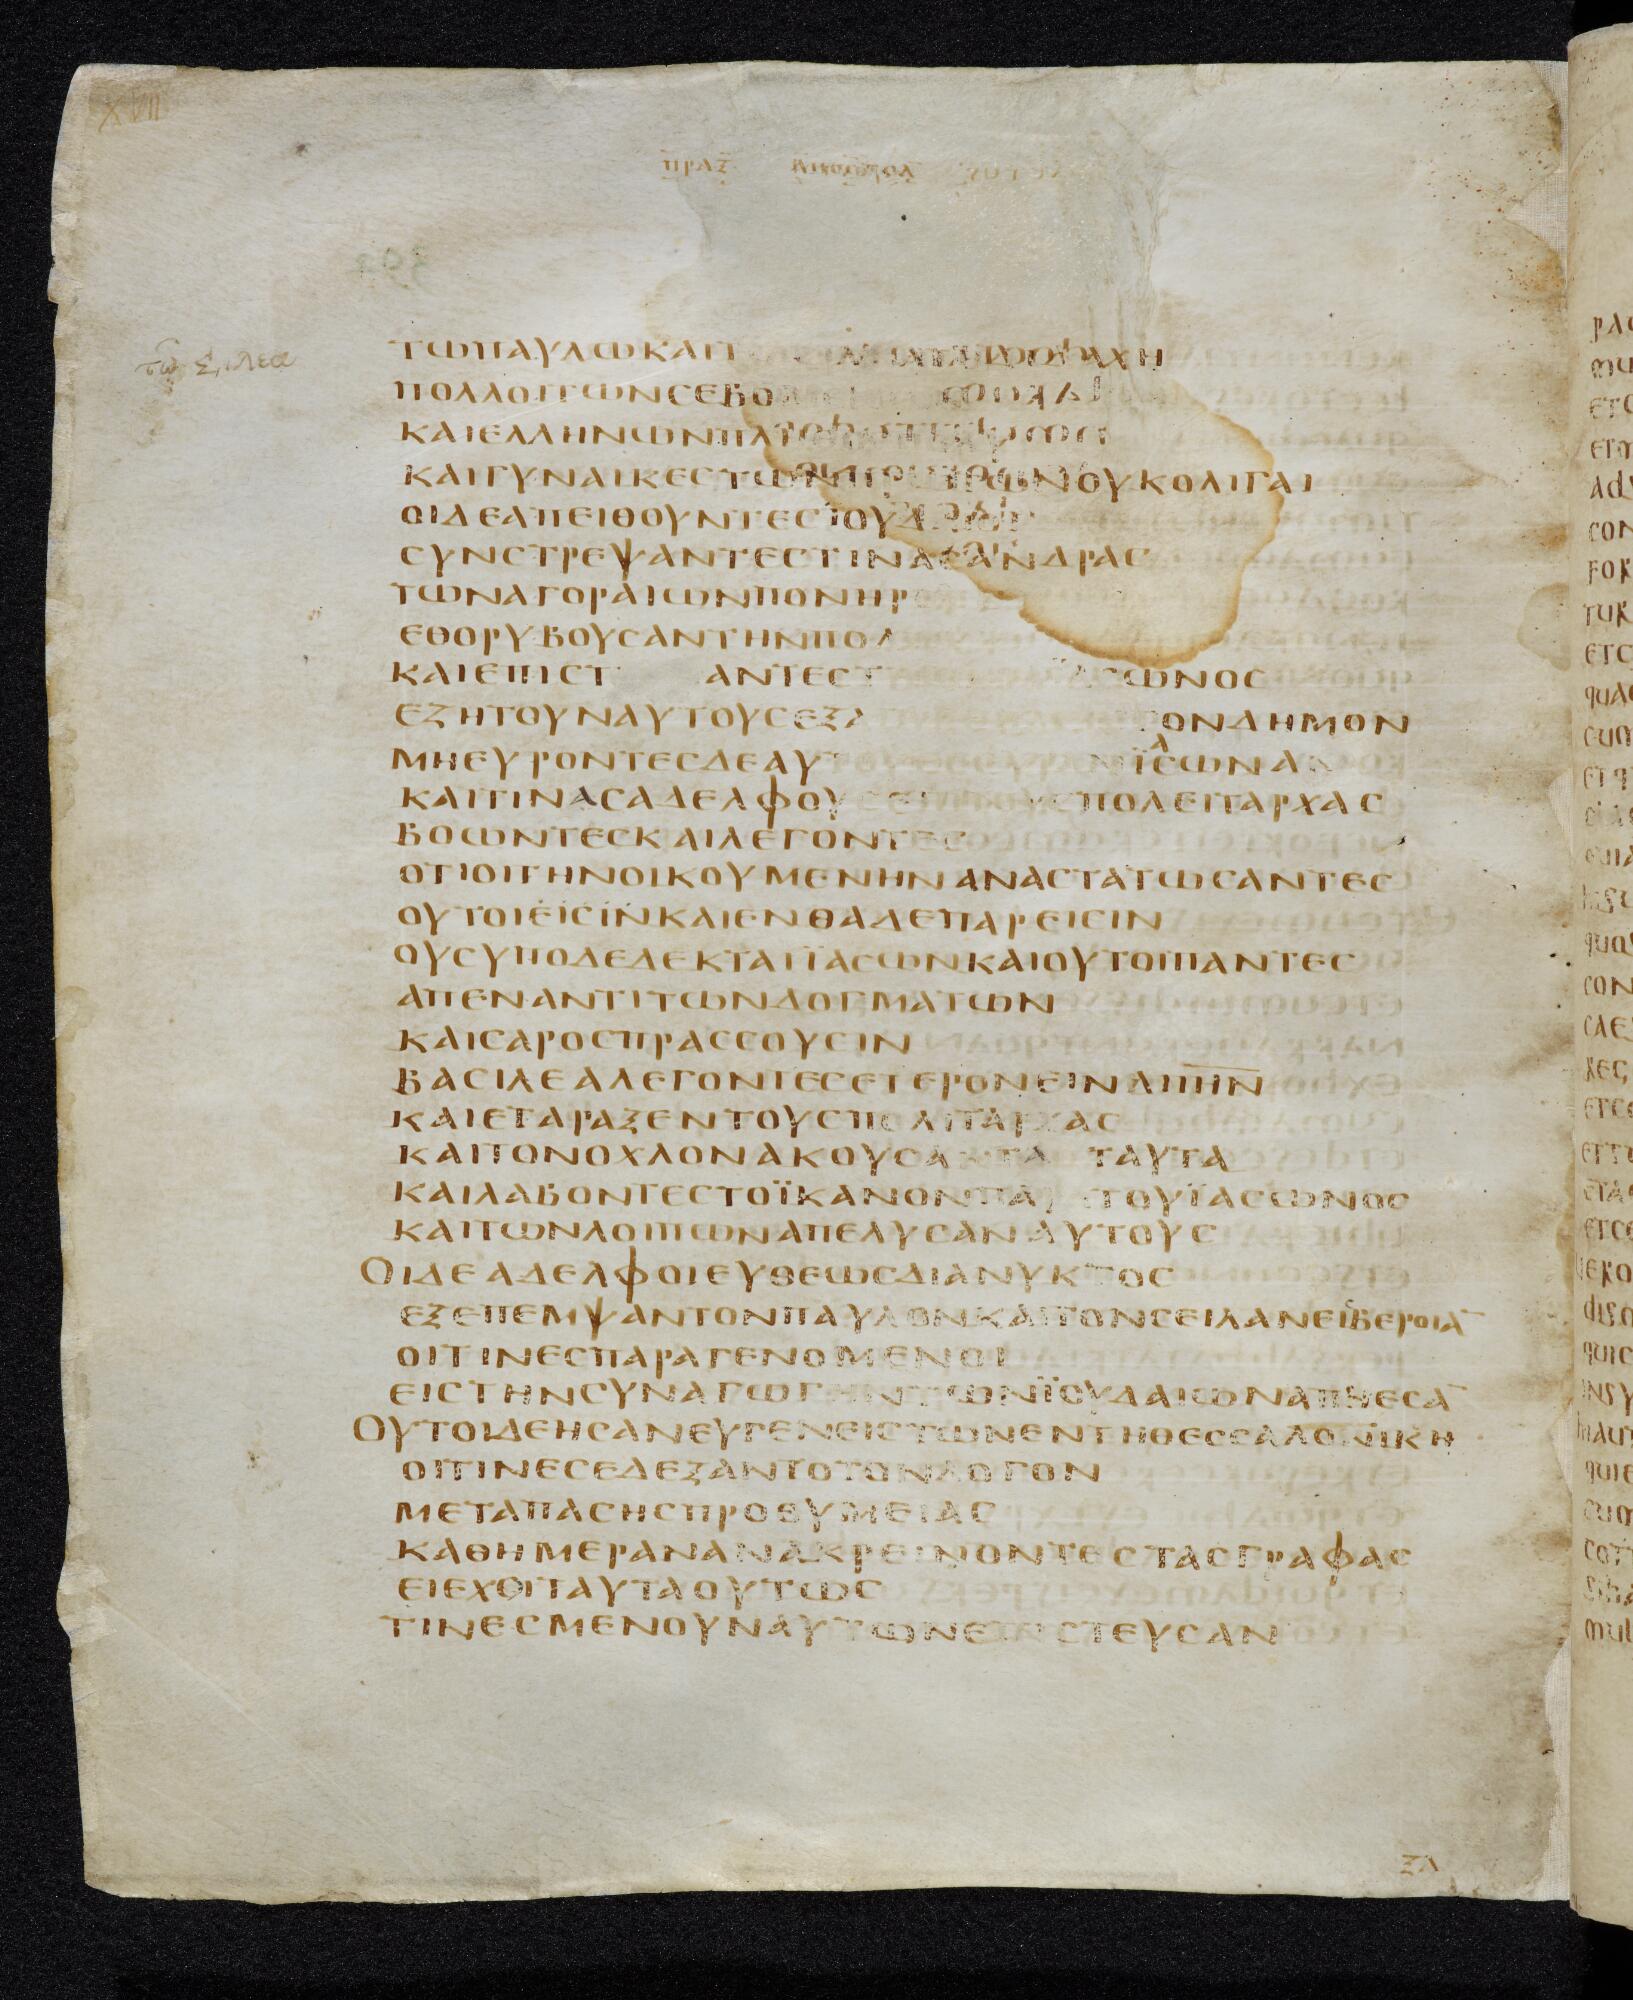 XVII
πραξ αποστολ
τω Σιλεα
ΤΩΠΑΥΛΩΚΑΙΤ ΔΙΔΑΧΗ
ΠΟΛΛΟΙΤΩΝΣΕΒΟ
ΚΑΙΕΛΛΗΝΩΝΠΛ
ΚΑΙΓΥΝΑΙΚΕΣΤΩΝΠΡΩΤΩΝΟΥΚΟΛΙΓΑΙ
ΟΙΔΕΑΠΕΙΘΟΥΝΤΕΣΙΟΥΔΑΙΟΙ
ΣΥΝΣΤΡΕΨΑΝΤΕΣΤΙΝΑΣΑΝΔΡΑΣ
ΤΩΝΑΓΟΡΑΙΩΝΠΟΝΗΡ
ΕΘΟΡΥΒΟΥΣΑΝΤΗΝΠΟΛ
ΚΑΙΕΠΙΣΤ ΑΝΤΕΣΤ ΪΑΣΩΝΟΣ
ΕΖΗΤΟΥΝΑΥΤΟΥΣΕΞΑ ΤΟΝΔΗΜΟΝ
ΜΗΕΥΡΟΝΤΕΣΔΕΑΥΤ ΝΪΑΣΩΝΑΚ
ΚΑΙΤΙΝΑΣΑΔΕΛΦΟΥΣΕΠ ΠΟΛΕΙΤΑΡΧΑΣ
ΒΟΩΝΤΕΣΚΑΙΛΕΓΟΝΤΕΣ
ΟΤΙΟΙΤΗΝΟΙΚΟΥΜΕΝΗΝΑΝΑΣΤΑΤΩΣΑΝΤΕΣ
ΟΥΤΟΙΕΙΣΙΝΚΑΙΕΝΘΑΔΕΠΑΡΕΙΣΙΝ
ΟΥΣΥΠΟΔΕΔΕΚΤΑΙΪΑΣΩΝΚΑΙΟΥΤΟΙΠΑΝΤΕΣ
ΑΠΕΝΑΝΤΙΤΩΝΔΟΓΜΑΤΩΝ
ΚΑΙΣΑΡΟΣΠΡΑΣΣΟΥΣΙΝ
ΒΑΣΙΛΕΑΛΕΓΟΝΤΕΣΕΤΕΡΟΝΕΙΝΑΙΙΗΝ
ΚΑΙΕΤΑΡΑΞΕΝΤΟΥΣΠΟΛΙΤΑΡΧΑΣ
ΚΑΙΤΟΝΟΧΛΟΝΑΚΟΥΣΑΝΤΑ ΤΑΥΤΑ
ΚΑΙΛΑΒΟΝΤΕΣΤΟΪΚΑΝΟΝΠΑΡΑΤΟΥΪΑΣΩΝΟΣ
ΚΑΙΤΩΝΛΟΙΠΩΝΑΠΕΛΥΣΑΝΑΥΤΟΥΣ
ΟΙΔΕΑΔΕΛΦΟΙΕΥΘΕΩΣΔΙΑΝΥΚΤΟΣ
ΕΞΕΠΕΜΨΑΝΤΟΝΠΑΥΛΟΝΚΑΙΤΟΝΣΕΙΛΑΝΕΙΣΒΕΡΟΙΑ̅
ΟΙΤΙΝΕΣΠΑΡΑΓΕΝΟΜΕΝΟΙ
ΕΙΣΤΗΝΣΥΝΑΓΩΓΗΝΤΩΝΪΟΥΔΑΙΩΝΑΠΗΕΣΑ̅
ΟΥΤΟΙΔΕΗΣΑΝΕΥΓΕΝΕΙΣΤΩΝΕΝΤΗΘΕΣΣΑΛΟΝΙΚΗ
ΟΙΤΙΝΕΣΕΔΕΞΑΝΤΟΤΟΝΛΟΓΟΝ
ΜΕΤΑΠΑΣΗΣΠΡΟΘΥΜΕΙΑΣ
ΚΑΘΗΜΕΡΑΝΑΝΑΚΡΕΙΝΟΝΤΕΣΤΑΣΓΡΑΦΑΣ
ΕΙΕΧΟΙΤΑΥΤΑΟΥΤΩΣ
ΤΙΝΕΣΜΕΝΟΥΝΑΥΤΩΝΕΠΙΣΤΕΥΣΑΝ